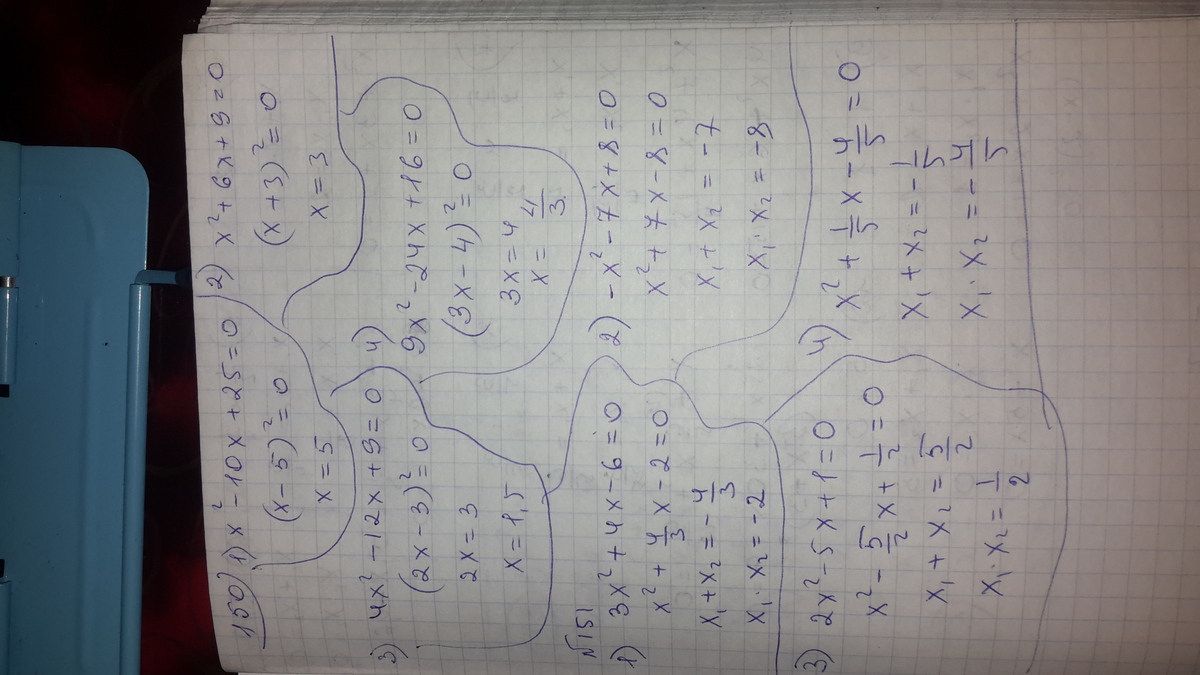 150) 1) x² - 10x + 25 = 0
(x - 5)² = 0
x = 5
2) x² + 6x + 9 = 0
(x + 3)² = 0
x = 3
3) 4x² - 12x + 9 = 0
(2x - 3)² = 0
2x = 3
x = 1,5
4)
9x² - 24x + 16 = 0
(3x - 4)² = 0
3x = 4
x = 4/3
№151
1) 3x² + 4x - 6 = 0
x² + 4/3 x - 2 = 0
x₁ + x₂ = - 4/3
x₁ · x₂ = -2
2) - x² - 7x + 8 = 0
x² + 7x - 8 = 0
x₁ + x₂ = -7
x₁ · x₂ = -8
3) 2x² - 5x + 1 = 0
x² - 5/2 x + 1/2 = 0
x₁ + x₂ = 5/2
x₁ · x₂ = 1/2
4) x² + 1/5 x - 4/5 = 0
x₁ + x₂ = - 1/5
x₁ · x₂ = - 4/5